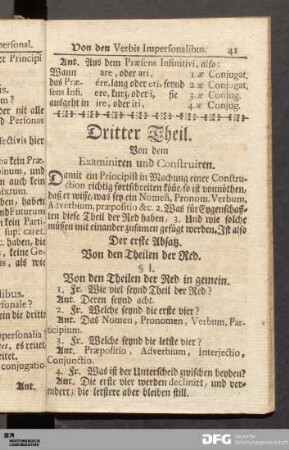 personal.
Von den Verbis Impersonalibus. 41
Ant. Aus dem Præsens Infinitivi, also:
Wann are, oder ari, 1.æ Conjugat.
das Præ- ére, lang oder eri, seynd 2.æ Conjugat,
sens Infi- ere, kurz, oder i, sie 3.æ Conjug.
ausgeht in ire, oder iri, 4.æ Conjug.
Dritter Theil.
Von dem
Examiniren und Construiren.
Damit ein Principist in Machung einer Constru-
ction richtig fortschreiten köñe, so ist vonnöthen,
daß er wisse, was sey ein Nomen, Pronom. Verbum,
Adverbium, præpositio &c. 2. Was für Eygenschaff-
ten diese Theil der Red haben, 3. Und wie solche
müssen mit einander zusamen gefügt werden. Ist also
Der erste Absatz.
Von den Theilen der Red.
§ I.
Von den Theilen der Red in gemein.
1. Fr. Wie viel seynd Theil der Red?
Ant. Deren seynd acht.
2. Fr. Welche seynd die erste vier?
Ant. Das Nomen, Pronomen, Verbum, Par-
ticipium.
3. Fr. Welche seynd die letste vier?
Ant. Præpositio, Adverbium, Interjectio,
Conjunctio.
4. Fr. Was ist der Unterscheid zwischen beyden?
Ant. Die erste vier werden declinirt, und ver-
ändert; die letstere aber bleiben still.
Ant.
DFG
Deutsche
Forschungsgemeinschaft